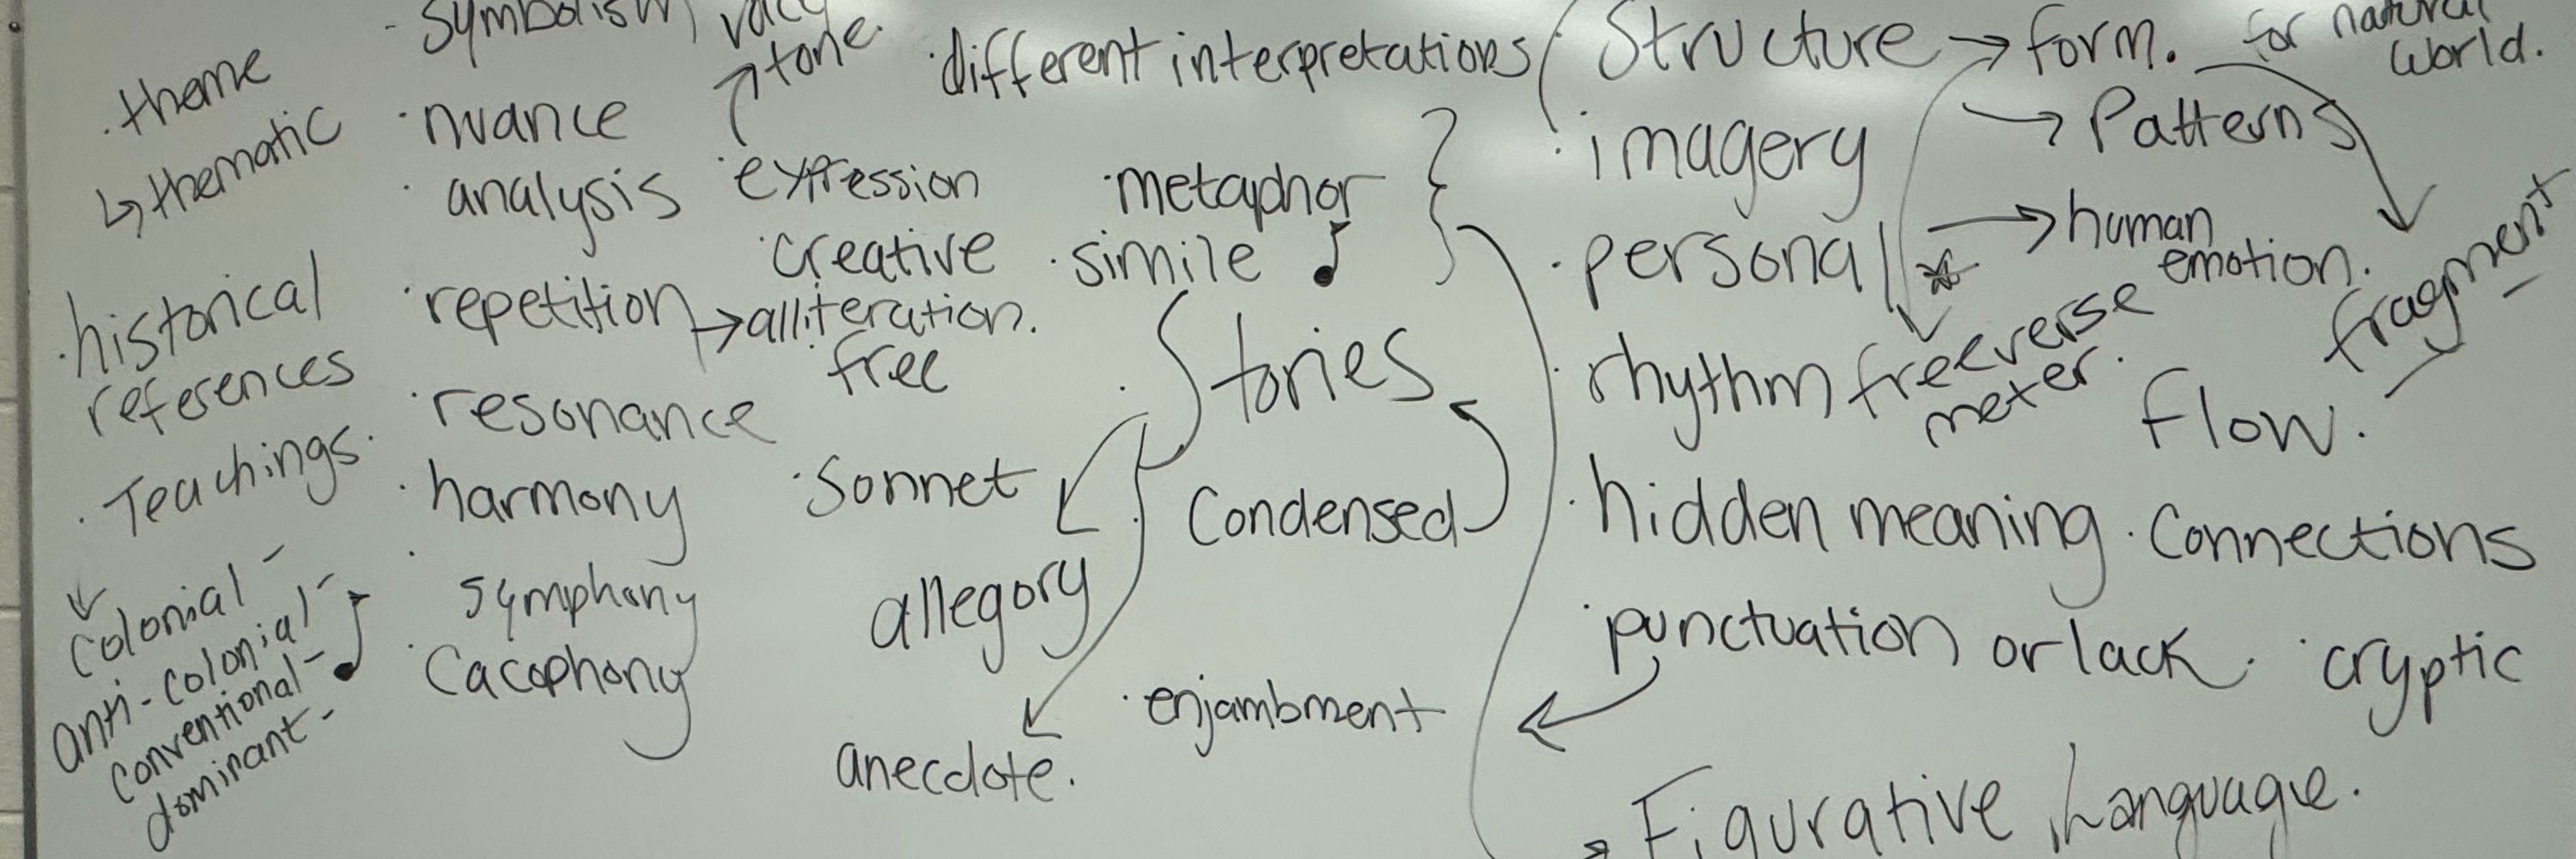 symbolism
tone.
· theme
↳ thematic
· historical
references
· Teachings.
colonial -
anti-colonial -
conventional -
dominant -
· nuance
· analysis
· repetition → alliteration.
· resonance
· harmony
· symphony
· cacophony
· expression
· creative
· free
· sonnet
· different interpretations
· metaphor
· simile
· Stories
Condensed
allegory
anecdote.
· enjambment
Structure → form.
→ Patterns
for natural
world.
· imagery
· personal * → human
emotion.
· rhythm free verse
meter.
flow.
fragment
· hidden meaning
· connections
· punctuation or lack.
· cryptic
Figurative Language.